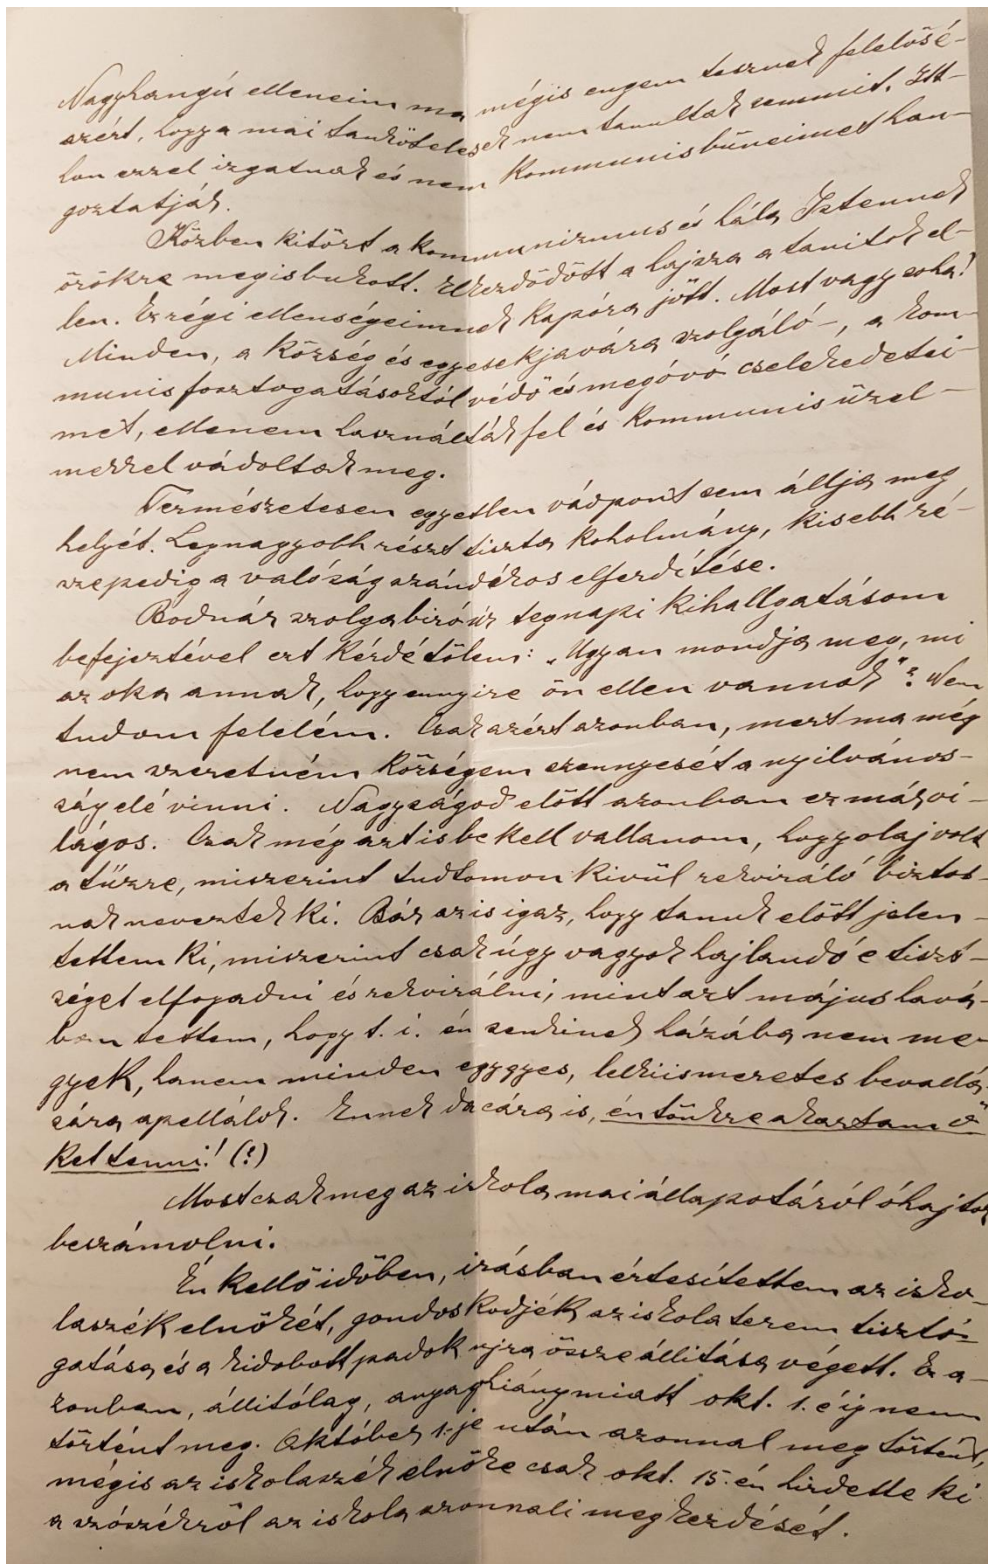 Nagyhangú elleneim ma mégis engem tesznek felelősé-
azért, hogy a mai tankötelesek nem tanultak semmit. Itt-
hon ezzel izgatnak és nem kommunis bűneimet han-
goztatják.
Közben kitört a kommunizmus és hála Istennek
örökre meg is bukott. Elkezdődött a hajsza a tanitok el-
len. Ez régi ellenségeimnek kapóra jött. Most vagy soha!
Minden, a község és egyesek javára szolgáló-, a kom-
munis fosztogatásoktól védő és megóvó cselekedetei-
met, ellenem használták fel és kommunis üzel-
mekkel vádoltak meg.
Természetesen egyetlen vádpont sem állja meg
helyét. Legnagyobb részt tiszta koholmány, kisebb ré-
sze pedig a valóság szándékos elferdítése.
Bodnár szolgabiró úr tegnapi kihallgatásom
befejeztével ezt kérdé tőlem: „Ugyan mondja meg, mi
az oka annak, hogy ennyire ön ellen vannak"? Nem
tudom felelém. Csak azért azonban, mert ma még
nem szeretném községem szennyesét a nyilvános-
ság elé vinni. Nagyságod előtt azonban ez már vi-
lágos. Csak még azt is be kell vallanom, hogy olaj volt
a tűzre, miszerint tudtomon kivül rekviráló biztos-
nak neveztek ki. Bár az is igaz, hogy tanuk előtt jelen-
tettem ki, miszerint csak úgy vagyok hajlandó e tiszt-
séget elfogadni és rekvirálni, mint azt május havá-
ban tettem, hogy t. i. én senkinek házába nem me-
gyek, hanem minden egygyes, lelkiismeretes bevallá-
sára apellálok. Ennek dacára is, én tönkre akartam ő-
ket tenni! (?)
Most csak meg az iskola mai állapotáról óhajtok
beszámolni.
Én kellő időben, irásban értesítettem az isko-
laszék elnökét, gondoskodjék az iskola terem tisztó-
gatása és a kidobott padok ujra összeállitása végett. Ez a-
zonban, állitólag, anyaghiány miatt okt. 1. éig nem
történt meg. Október 1.-je után azonnal meg történt,
mégis az iskolaszék elnöke csak okt. 15.-én hirdette ki
a szószékről az iskola azonnali megkezdését.